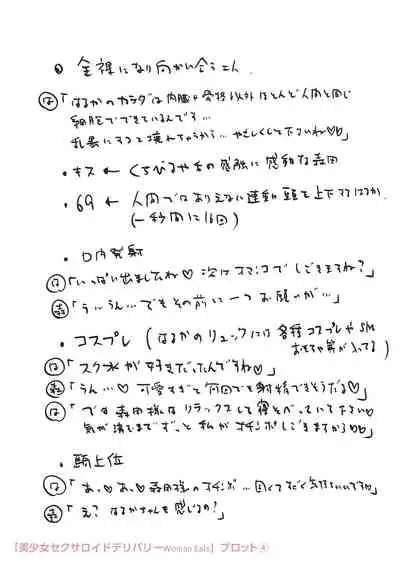 ◎ 全裸になり向かい合う二人
は「はるかのカラダは内臓や骨格以外ほとんど人間と同じ
細胞でできているんです…
乱暴にすると壊れちゃうから… やさしくして下さいね♡♡」
・キス ← くちびるや舌の感触に感動な森田
・69 ← 人間ではありえない運動 頭を上下するはるか
(一秒間に16回)
・口内発射
は「いっぱい出ましたね♡ 次はオマンコでしごきますね?」
森「う…うん… でもその前に一つお願いが…」
・コスプレ (はるかのリュックには各種コスプレやSM
おもちゃ等が入ってる)
は「スク水が好きだったんですね♡」
森「うん…♡ 可愛すぎて何回でも射精できそうだる♡」
は「では森田様はリラックスして寝そべっていて下さい♡
気が済むまでずっと私がオチンポしごきますから♡♡」
・騎上位
は「あっ♡あっ♡森田様のオチンポ…固くてすごく気持ちいいです♡」
森「え? はるかちゃんも感じるの?」
「美少女セクサロイドデリバリーWoman Eals」 プロット④